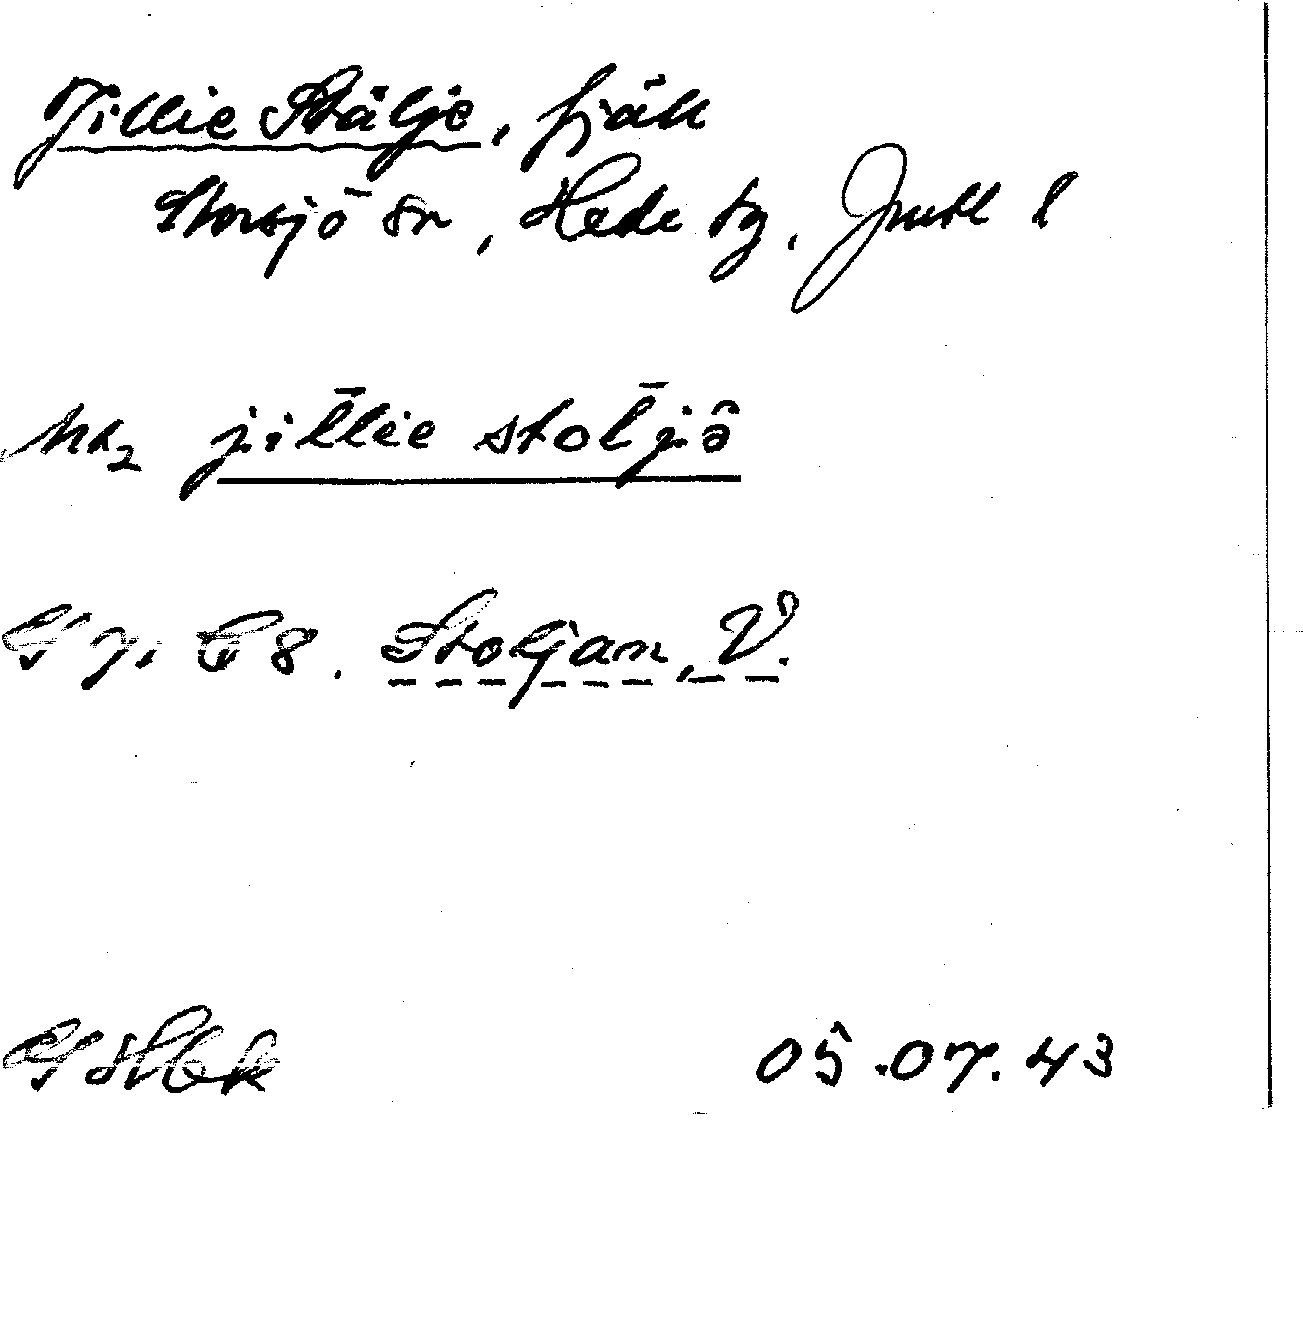 Jillie Stälje, fjäll
Storsjö sn, Hede tg, Jmtl l
jīl̄lie stol̄jə̂
G 7. C8. Stoljan, V.
GHbk 05.07.43